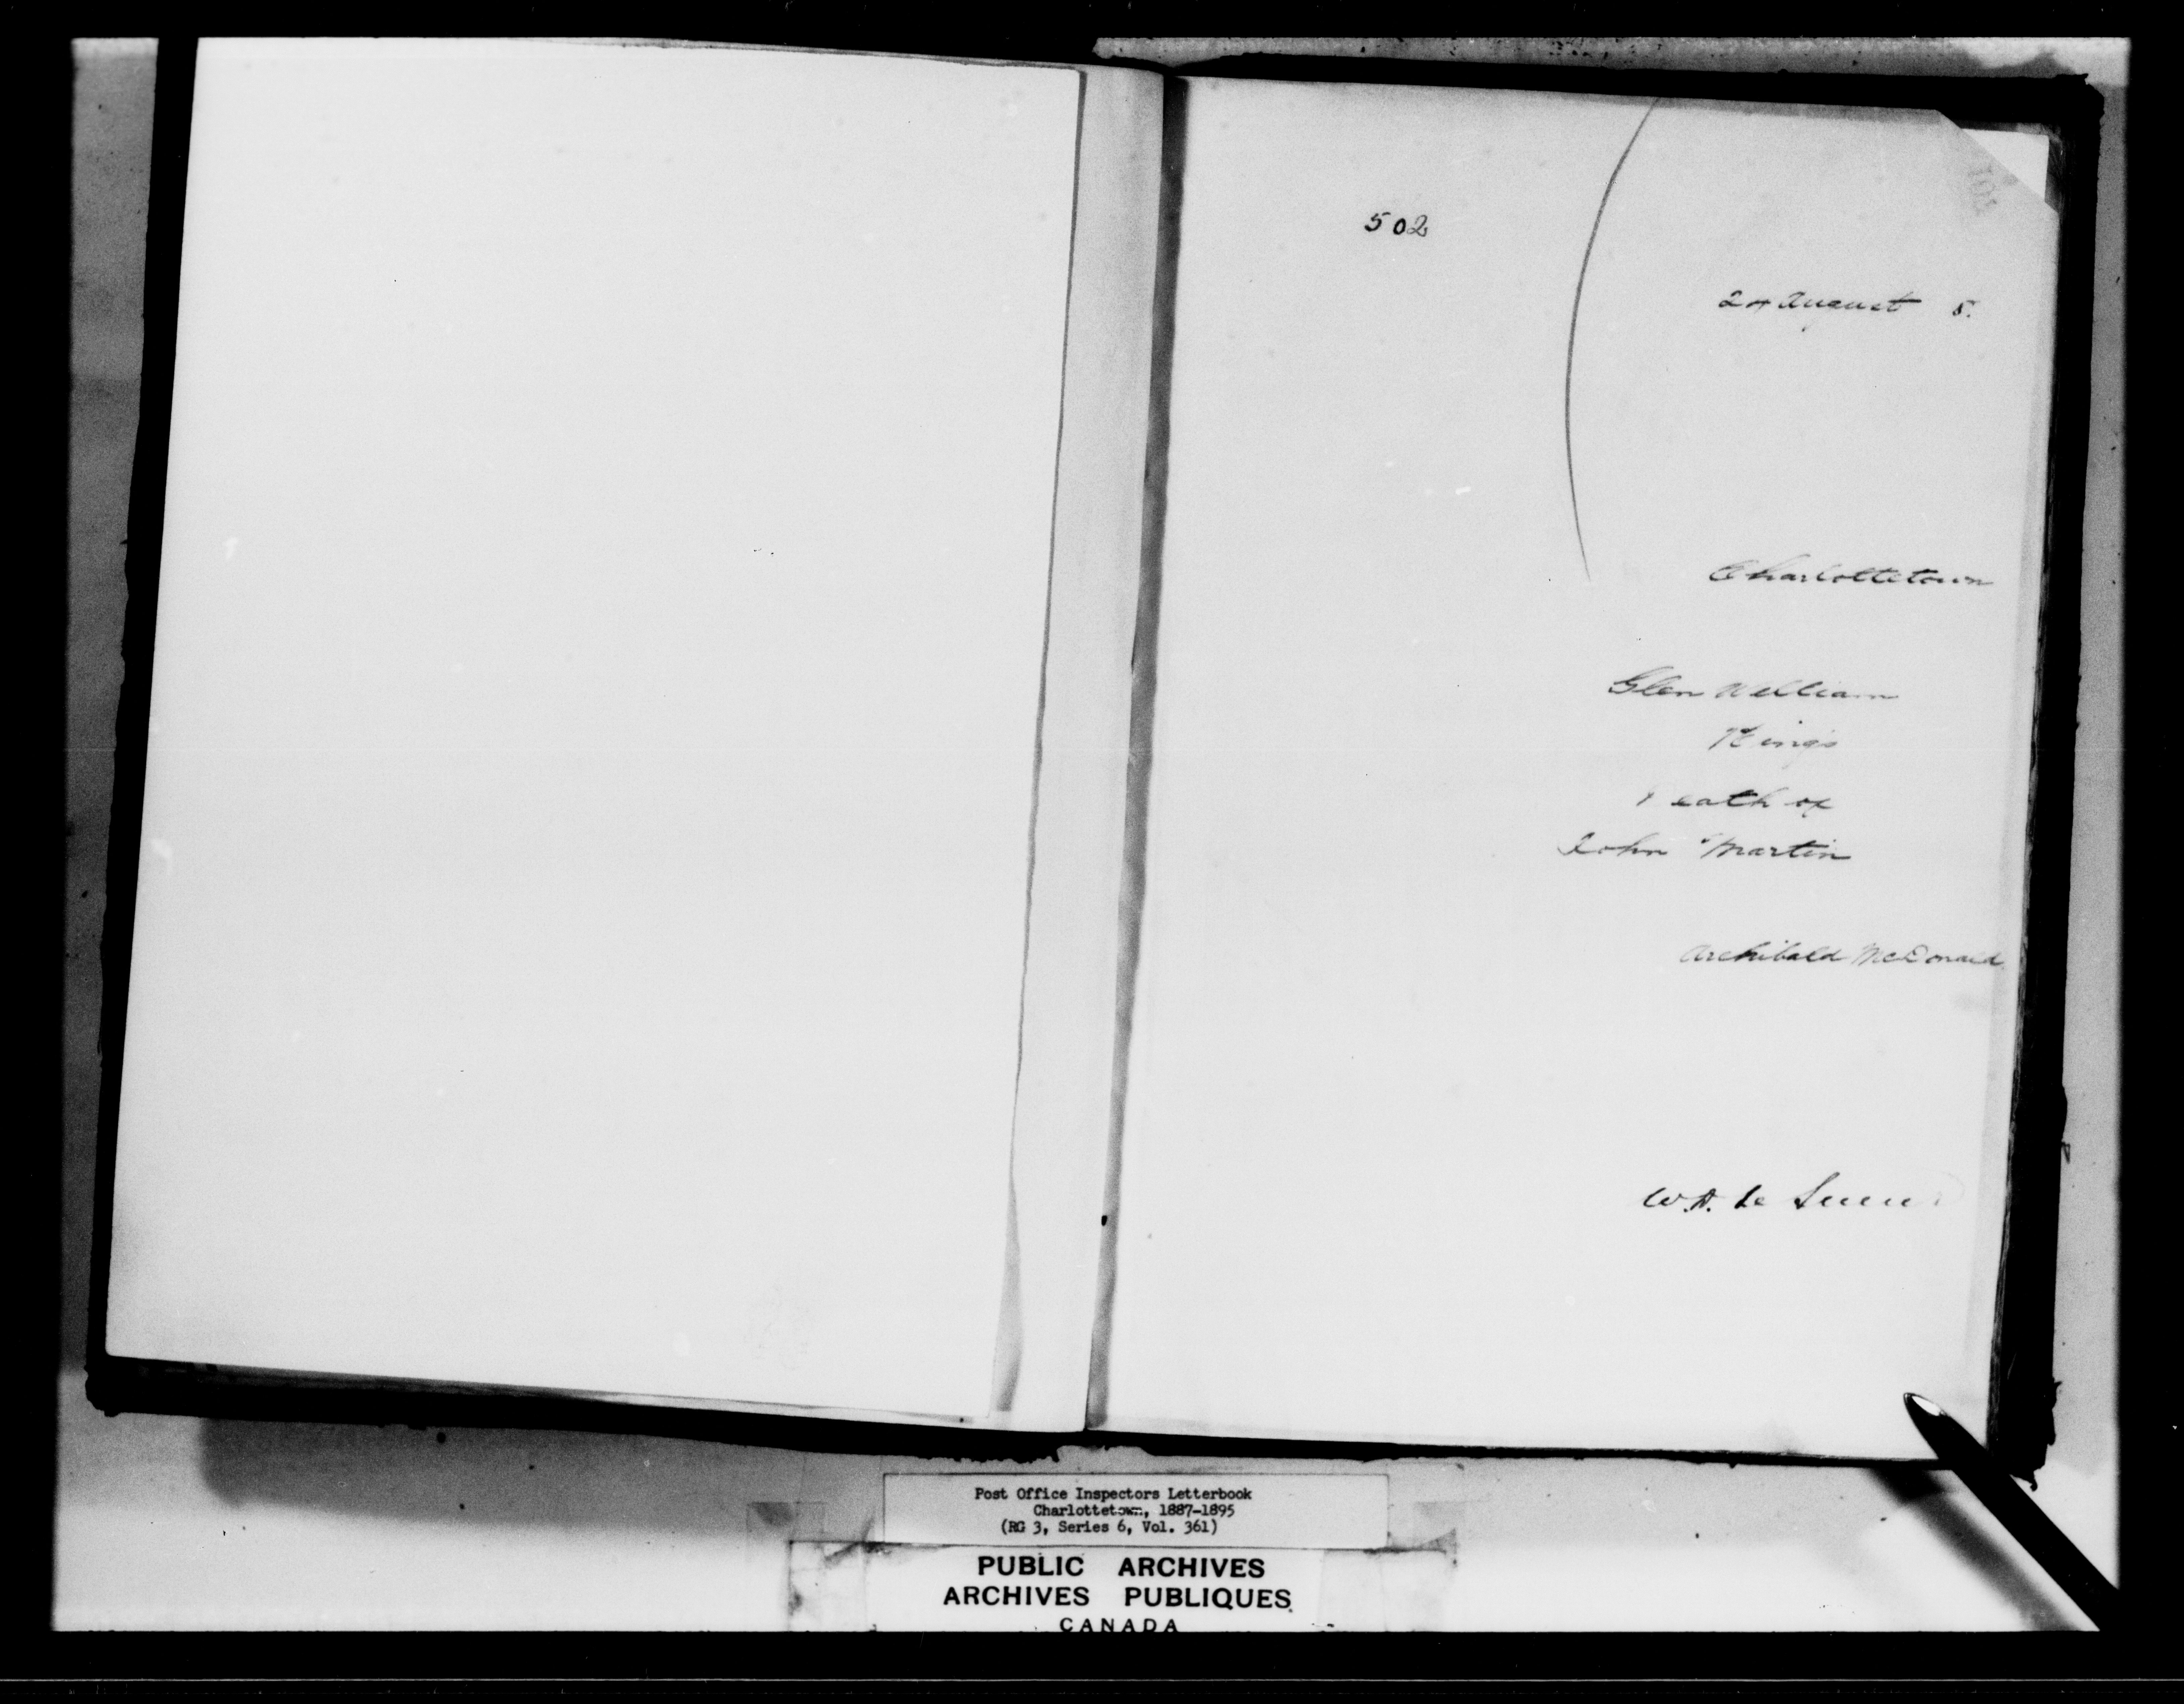 502
24 August 5.
Charlottetown
Glen William
Kings
eath of
John Martin
Archibald McDonald
W.H. de
Post Office Inspectors Letterbook
Charlottetown, 1887-1895
(RG 3, Series 6, Vol. 361)
PUBLIC ARCHIVES
ARCHIVES PUBLIQUES
CANADA